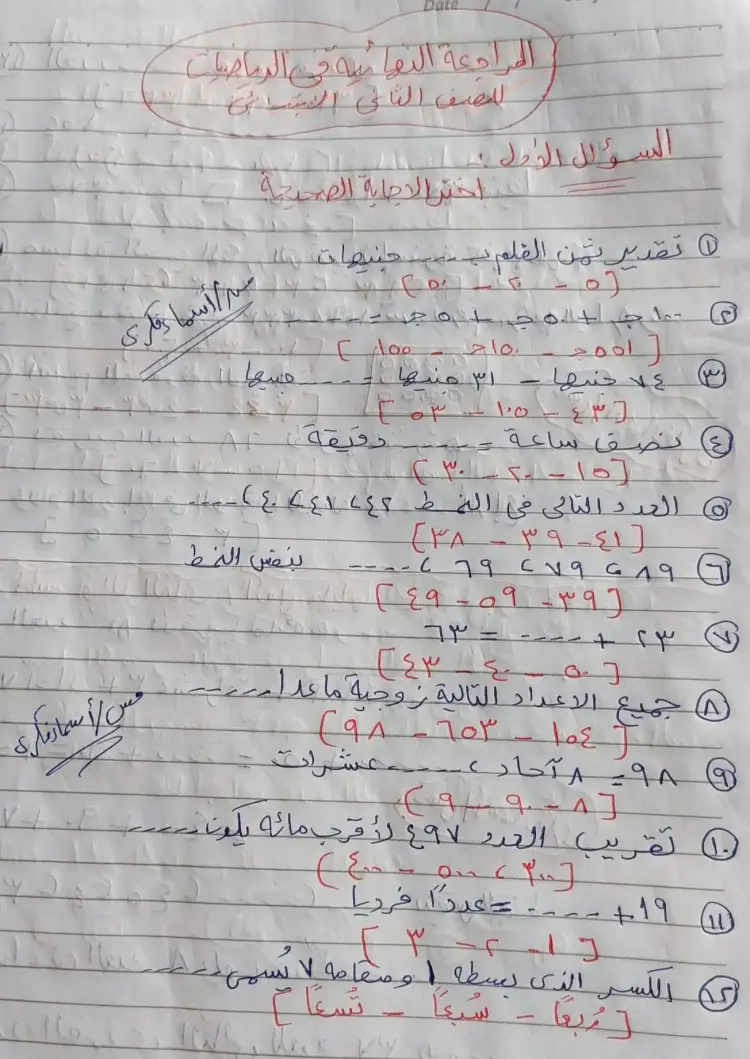 Date / /
المراجعة النهائية في الرياضيات
للصف الثاني الابتدائي
السؤال الأول :
اختر الإجابة الصحيحة
① تقدير ثمن القلم بـ ---- جنيهات
[٥ - ٢٠ - ٥٠]
② ١٠٠ج + ٥٠ج + ٥ج = ------
مس/أسماء فكرى
[١٥٥ج - ١٥٠ج - ١٥٥]
③ ٧٤ جنيها - ٣١ جنيها = ---- جنيها
[٤٣ - ١٠٥ - ٥٣]
④ نصف ساعة = ---- دقيقة
[١٥ - ٢٠ - ٣٠]
⑤ العدد التالي في النمط ٤٤، ٤٢، ٤٠، ----
[٤١ - ٣٩ - ٣٨]
⑥ ٨٩، ٧٩، ٦٩، ---- بنفس النمط
[٣٩ - ٥٩ - ٤٩]
⑦ ٢٣ + ---- = ٦٣
[٥٠ - ٤٠ - ٤٣]
⑧ جميع الاعداد التالية زوجية ماعدا -----
مس/أسماء فكرى
[١٥٤ - ٦٥٣ - ٩٨]
⑨ ٩٨ = ٨ آحاد، ---- عشرات =
[٨ - ٩٠ - ٩]
⑩ تقريب العدد ٤٩٧ لأقرب مائه يكون -----
[٣٠٠، ٥٠٠ - ٤٠٠]
⑪ ١٩ + ---- = عددًا فرديا
[١ - ٢ - ٣]
⑫ الكسر الذى بسطه ١ ومقامه ٧ يُسمى ----
[رُبعاً - سُبعاً - تُسعاً]